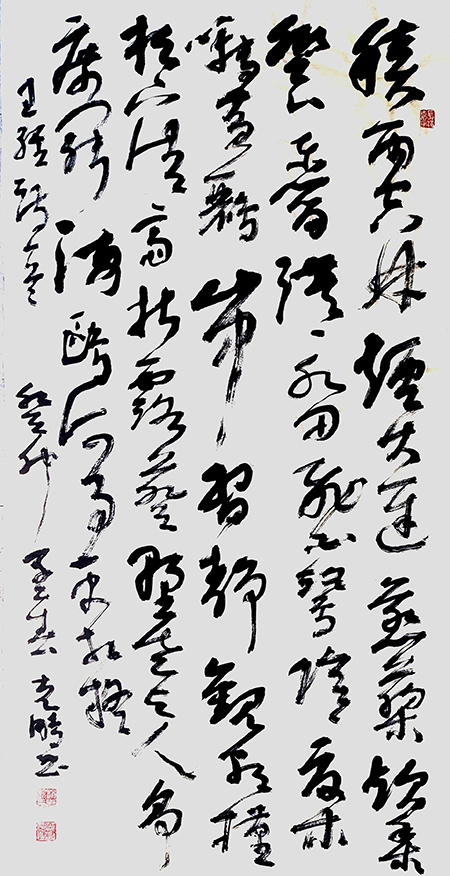 積雨空林煙火遲蒸藜炊黍
餉東菑漠〻水田飛白鷺陰〻夏木
囀黃鸝山中習靜觀朝槿
松下清齋折露葵野老與人爭
席罷海鷗何事更相疑
王維詩癸卯孟春鵬書